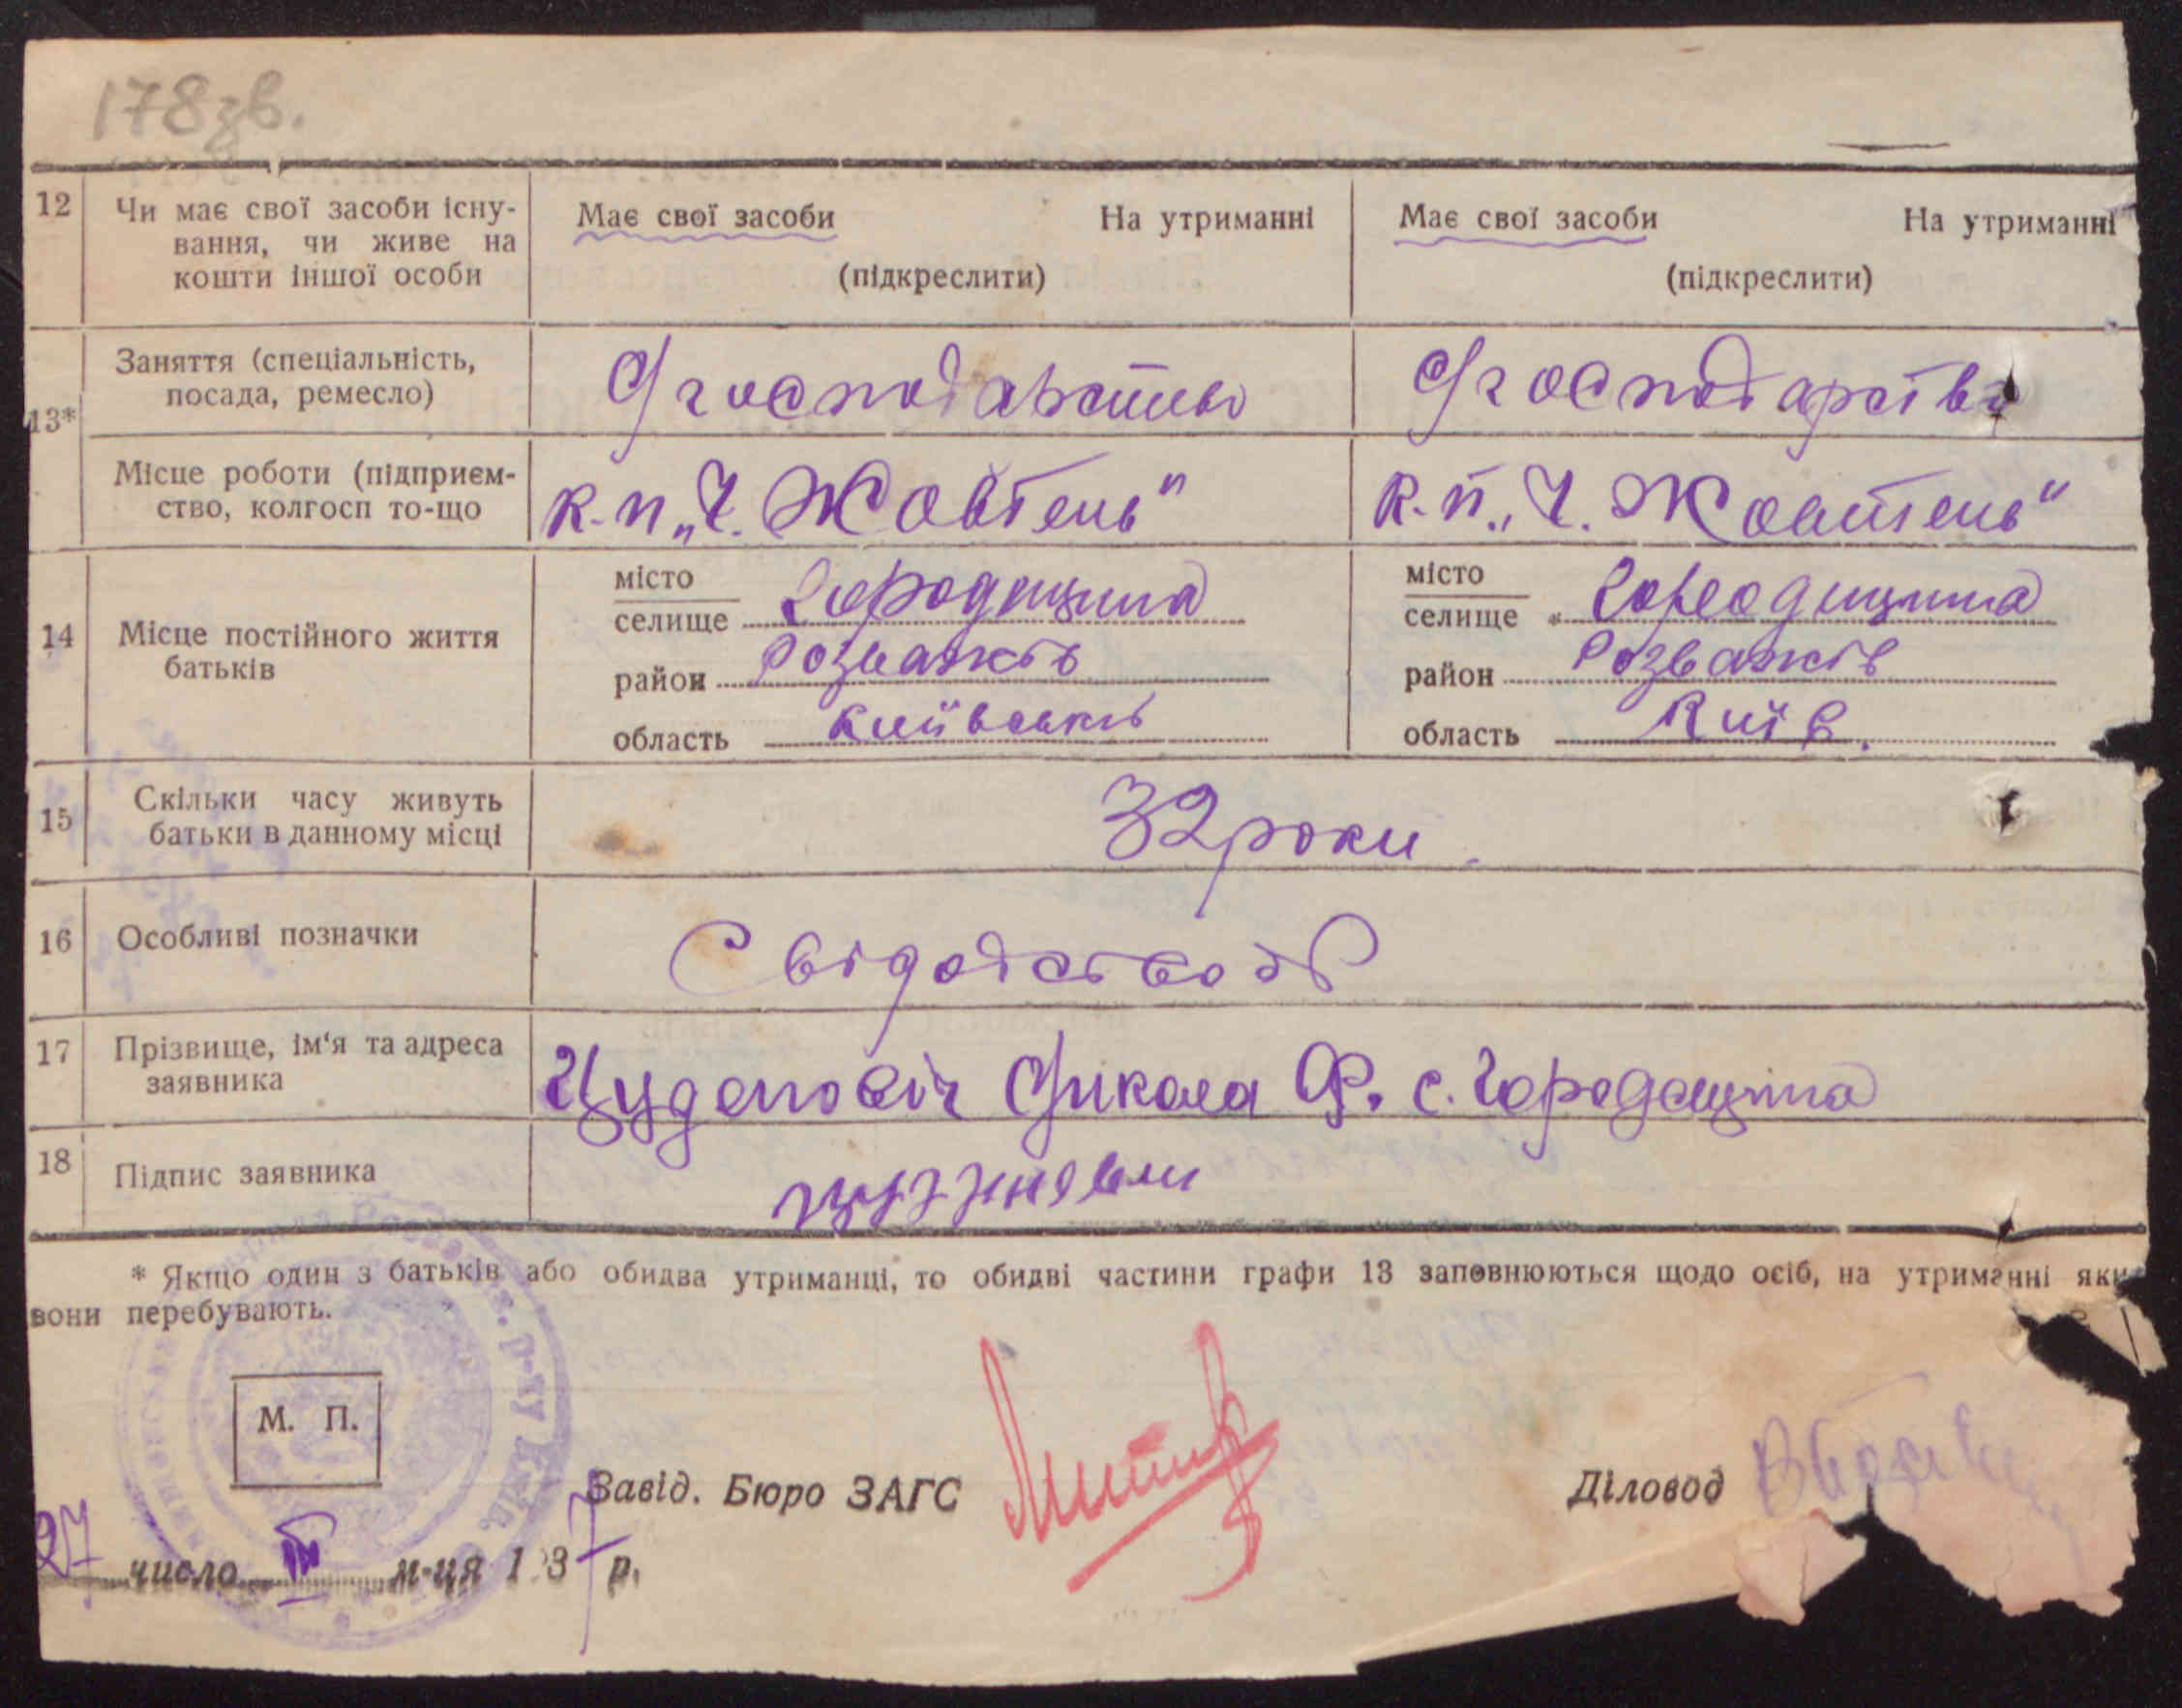 178 зв.
12 Чи має свої засоби існу- Має свої засоби На утриманні Має свої засоби На утриманні
вання, чи живе на
кошти іншої особи (підкреслити) (підкреслити)
Заняття (спеціальність,
посада, ремесло) господарство господарство
13*
Місце роботи (підприєм-
ство, колгосп то-що к.п „Ч. Жовтень“ к.п. „Ч. Жовтень“
місто місто
селище Городищина селище Городищина
14 Місце постійного життя
батьків район Розважів район Розважів
область Київськів область Київ.
15 Скільки часу живуть
батьки в данному місці 32 роки.
16 Особливі позначки
17 Прізвище, ім‘я та адреса
заявника Микола Ф. с. Городищина
18 Підпис заявника
* Якщо один з батьків або обидва утриманці, то обидві частини графи 13 заповнюються щодо осіб, на утриманні яки
вони перебувають.
М. П.
Завід. Бюро ЗАГС Діловод
27 число м-ця 1937 р.